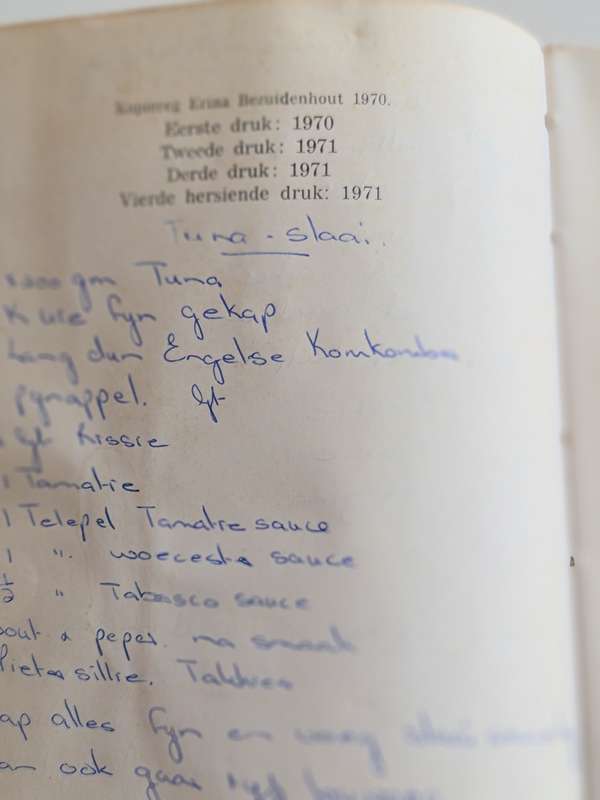 Kopiereg Erina Bezuidenhout 1970.
Eerste druk: 1970
Tweede druk: 1971
Derde druk: 1971
Vierde hersiende druk: 1971
Tuna - slaai.
gm Tuna
uie fyn gekap
lang dun Engelse Komkommer
pynappel. Gt
Gt Rissie
1 Tamatie
1 Telepel Tamatie sauce
1 ". woecests sauce
1/2 " Tabasco sauce
sout & peper na smaak
Pietersillie. Takkies
ap alles fyn en meng
an ook gaar rys